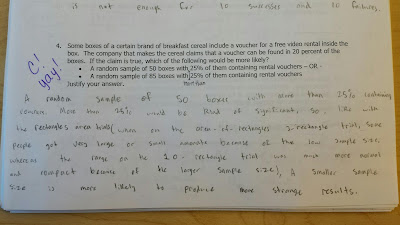 is not enough for 10 successes and 10 failures.
4. Some boxes of a certain brand of breakfast cereal include a voucher for a free video rental inside the
box. The company that makes the cereal claims that a voucher can be found in 20 percent of the
boxes. If the claim is true, which of the following would be more likely?
• A random sample of 50 boxes with 25% of them containing rental vouchers – OR -
• A random sample of 65 boxes with 25% of them containing rental vouchers
Justify your answer. more than
C!
yay!
A random sample of 50 boxes with more than 25% containing
vouchers. More than 25% would be kind of significant, so like with
the rectangles area thing (when on the area-of-rectangles 2-rectangle trial, some
people got very large or small amounts because of the low sample size,
whereas the range on the 10-rectangle trial was much more normal
and compact because of the larger sample size), a smaller sample
size is more likely to produce more strange results.